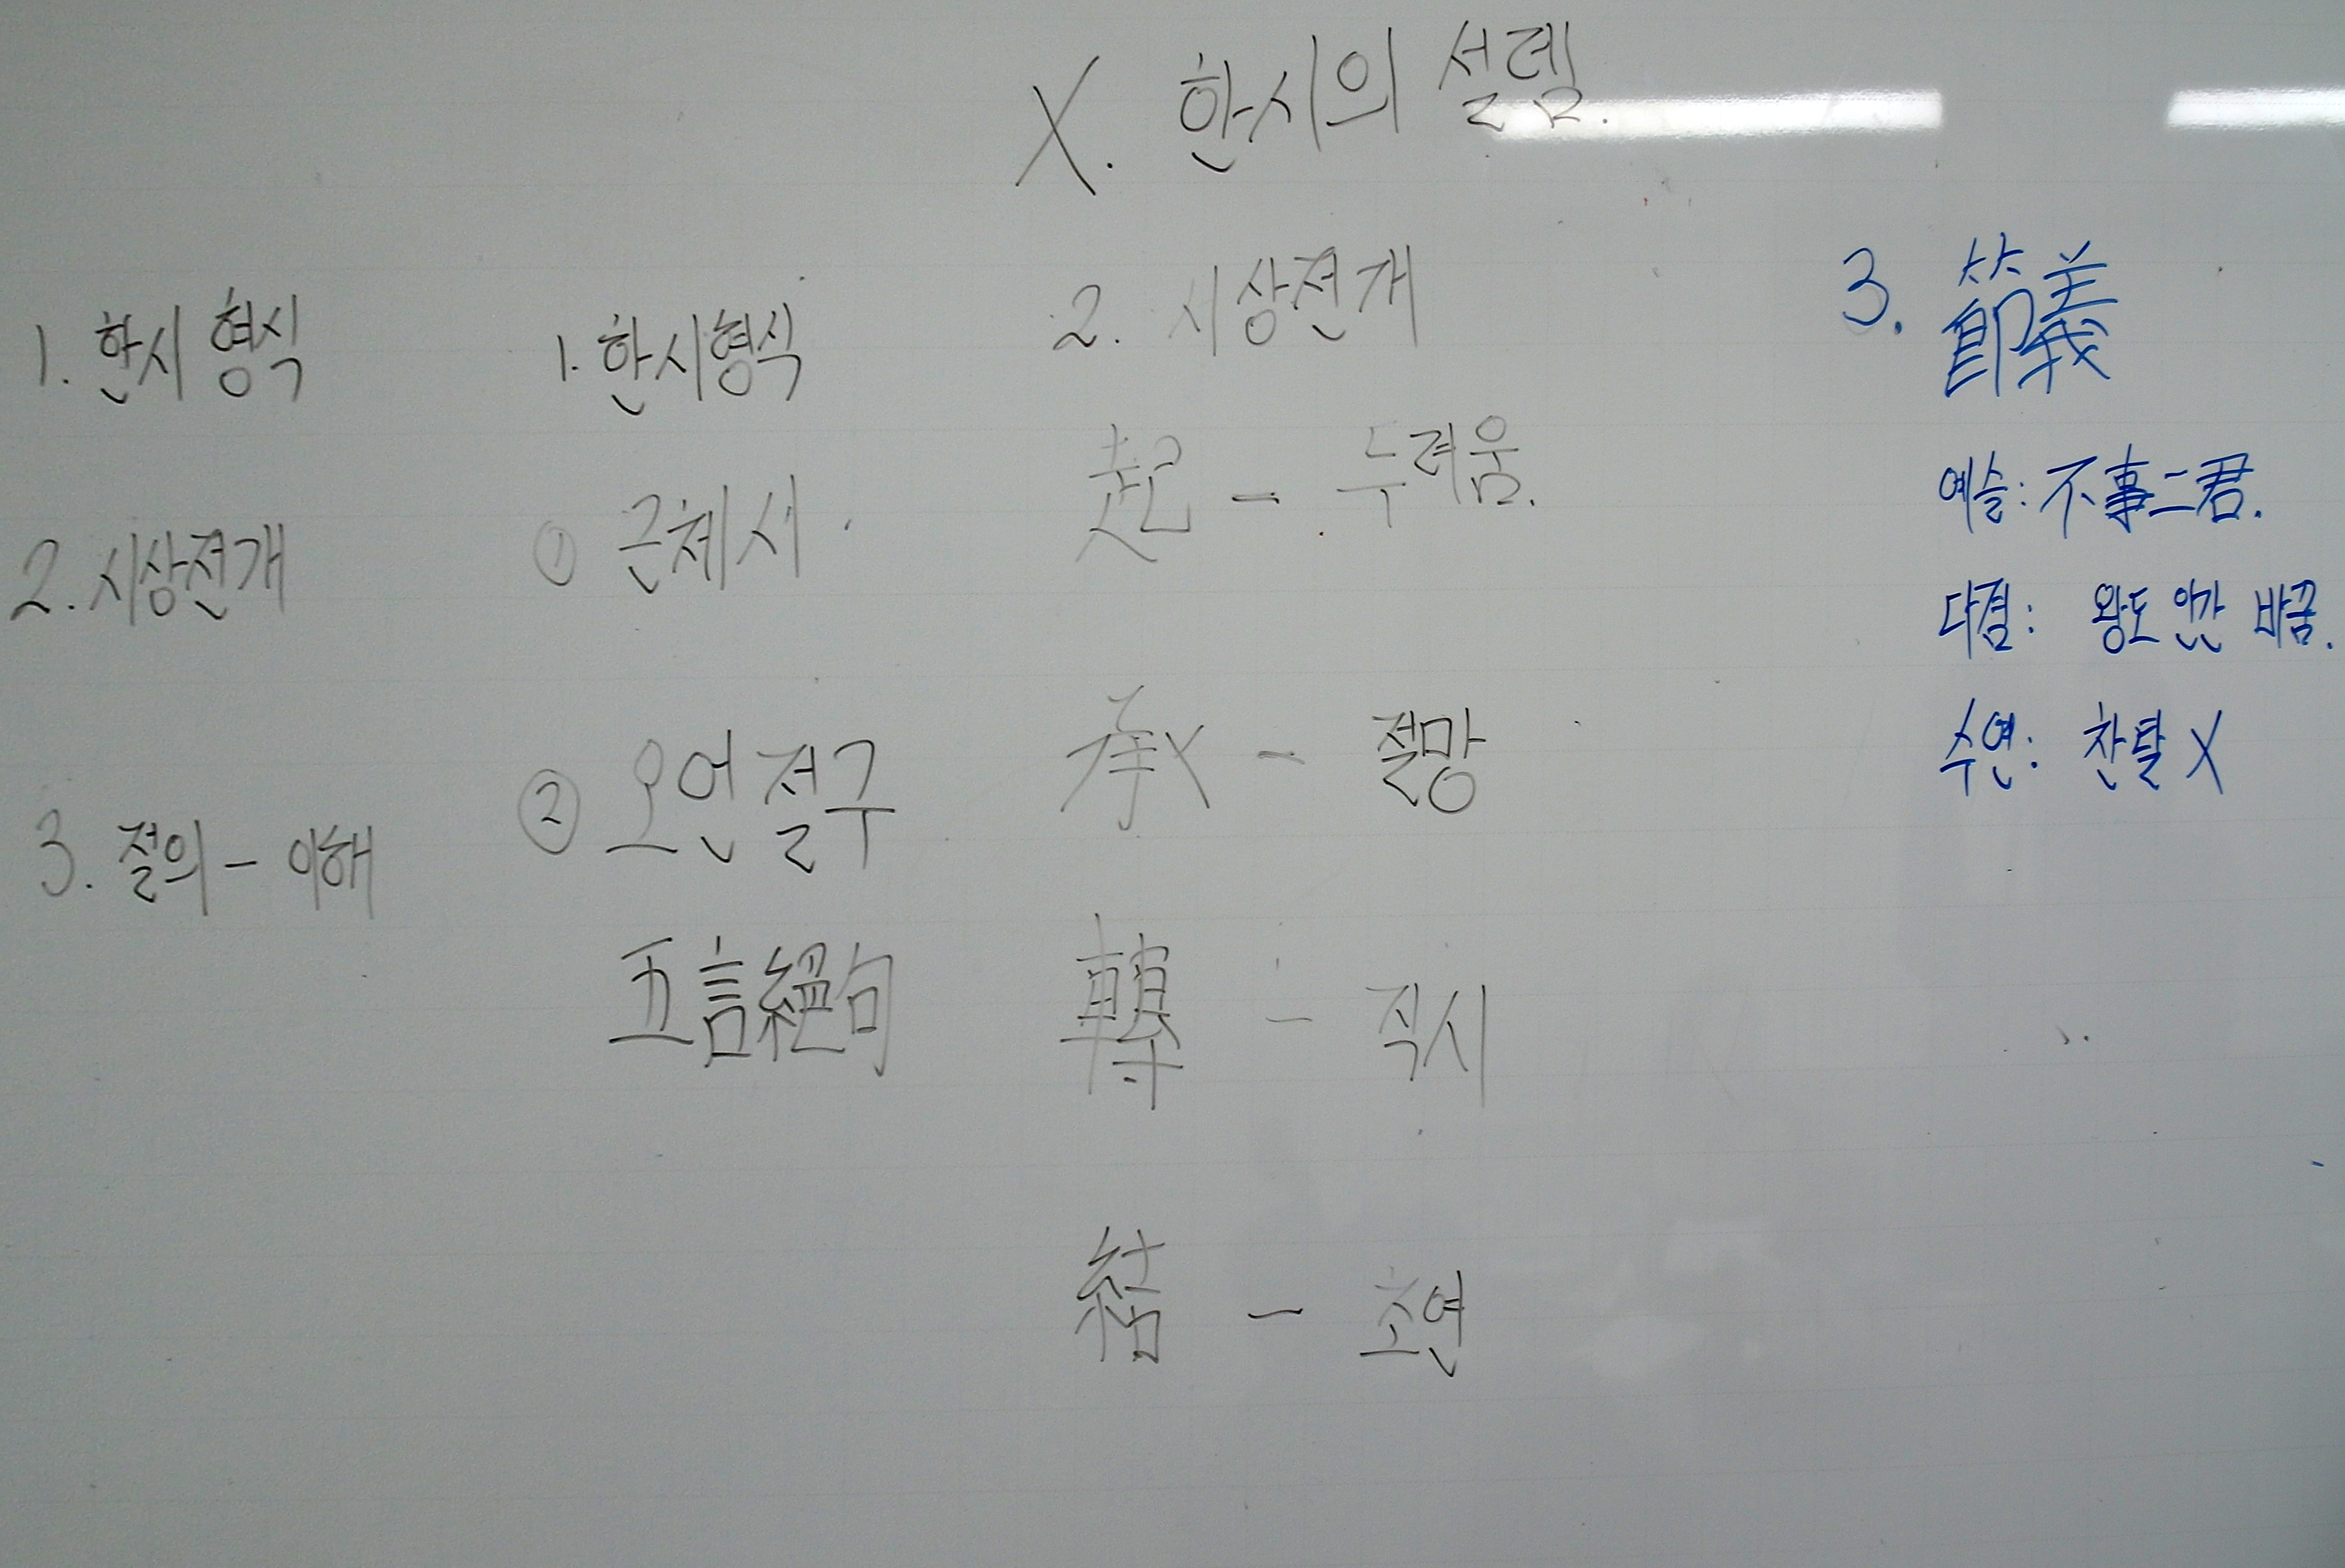 X. 한시의 설렘.
1. 한시 형식
2. 시상전개
3. 절의 - 이해
1. 한시형식
① 근체시.
② 오언절구
五言絕句
2. 시상전개
起 - 두려움.
承 - 절망
轉 - 직시
結 - 초연
3. 節義
예슬: 不事二君.
다결: 왕도 안 바꿈.
수연: 찬탈 X